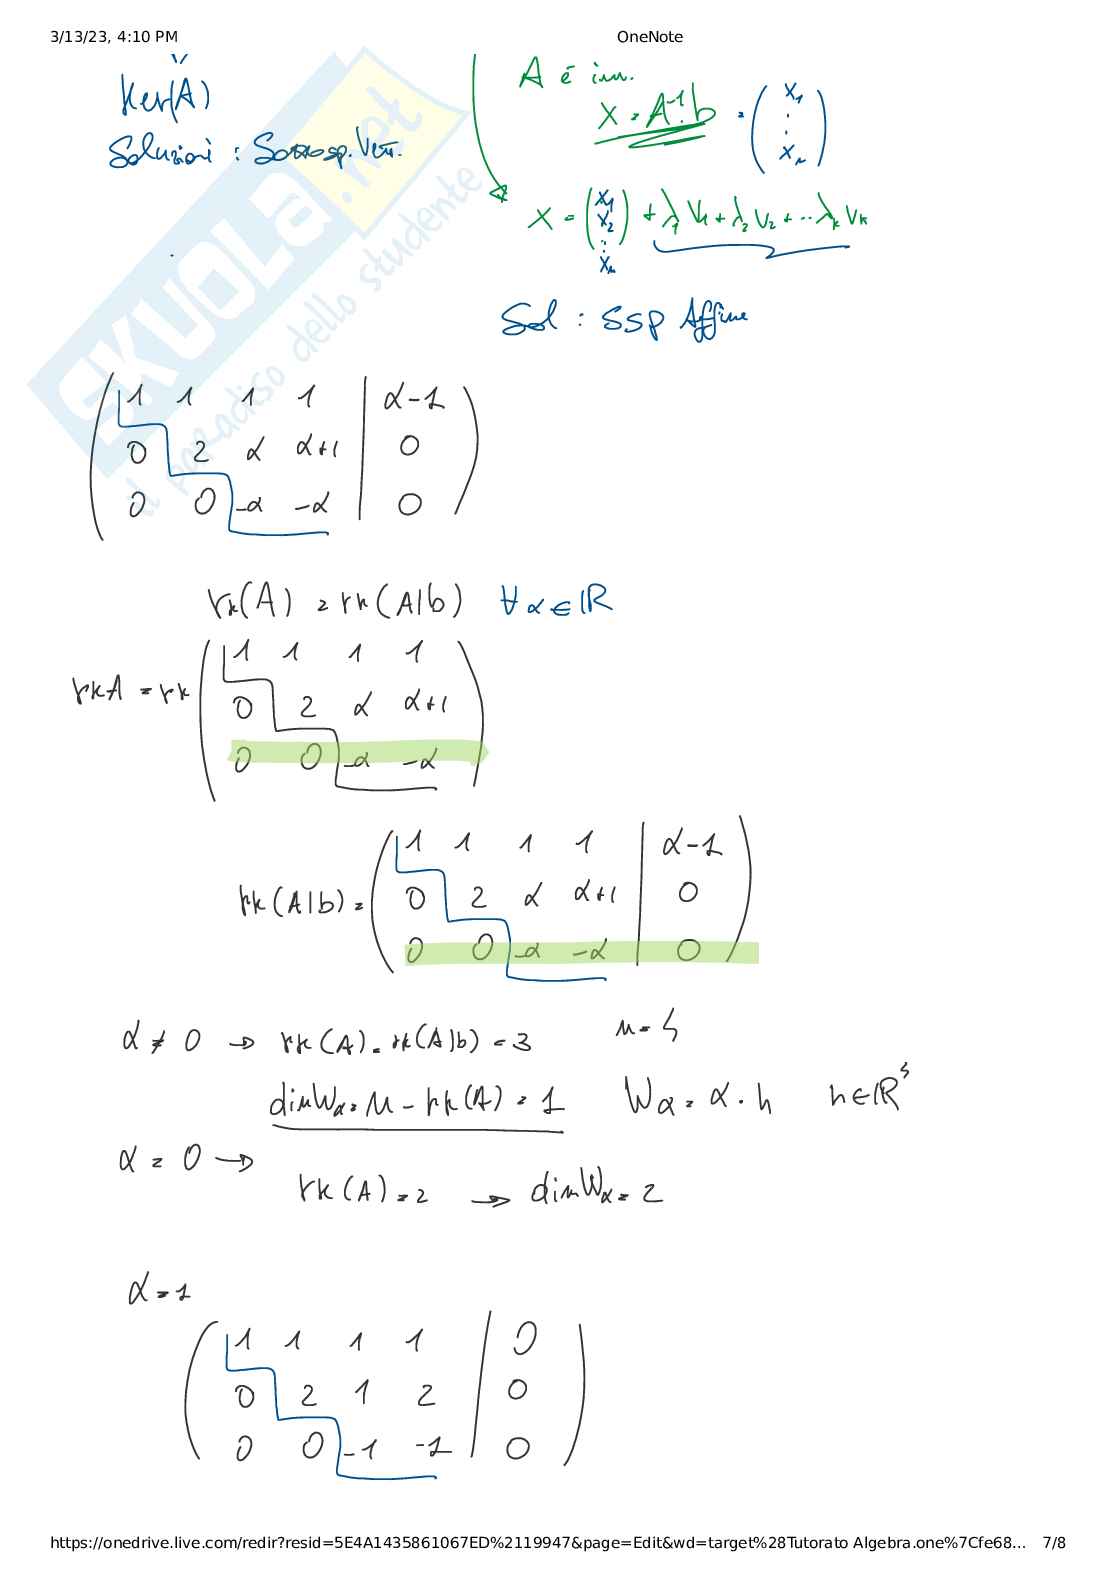 3/13/23, 4:10 PM OneNote
Ker(A)
Soluzioni : Sottosp. Vett.
A é inv.
X = A⁻¹·b = (x₁ . . xₙ)
X = (x₁ x₂ : xₙ) + λ₁ V₁ + λ₂ V₂ + ... λₖ Vₖ
Sol : SSP Affine
SKUOLA.net
il paradiso dello studente
1 1 1 1 | α-1
0 2 α α+1 | 0
0 0 -α -α | 0
rk(A) = rk(A|b) ∀ α ∈ ℝ
rkA = rk
1 1 1 1
0 2 α α+1
0 0 -α -α
rk(A|b) =
1 1 1 1 | α-1
0 2 α α+1 | 0
0 0 -α -α | 0
α ≠ 0 → rk(A) = rk(A|b) = 3 n = 4
dim Wα = n - rk(A) = 1 Wα = α · h h ∈ ℝ⁴
α = 0 →
rk(A) = 2 → dim Wα = 2
α = 1
1 1 1 1 | 0
0 2 1 2 | 0
0 0 -1 -1 | 0
https://onedrive.live.com/redir?resid=5E4A1435861067ED%2119947&page=Edit&wd=target%28Tutorato Algebra.one%7Cfe68... 7/8